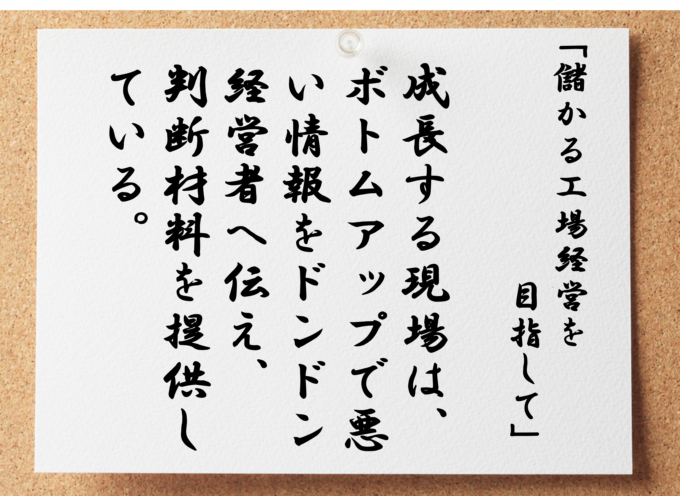 「儲かる工場経営を
目指して」
成長する現場は、
ボトムアップで悪
い情報をドンドン
経営者へ伝え、
判断材料を提供し
ている。